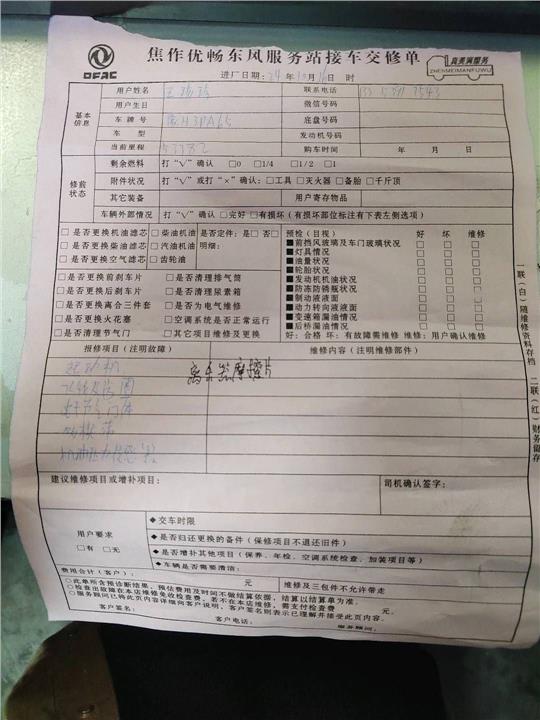 DFAC
焦作优畅东风服务站接车交修单
真美满服务
ZHENMEIMANFUWU
进厂日期：24 年 10 月 16 日 时
基本信息
用户姓名 联系电话
用户生日 微信号码
车牌号 底盘号码
车型 发动机号码
当前里程 购车时间 年 月 日
修前状态
剩余燃料 打“√”确认 □0 □1/4 □1/2 □1
附件状况 打“√”或打“×”确认：□工具 □灭火器 □备胎 □千斤顶
其它装备 用户寄存物品
车辆外部情况 打“√”确认 □完好 □有损坏（有损坏部位标注有下表左侧选项）
□是否更换机油滤芯 □柴油机油 是否定件：是□ 否□
□是否更换柴油滤芯 □汽油机油 明细：
□是否更换空气滤芯 □齿轮油
□是否更换前刹车片 □是否清理排气筒
□是否更换后刹车片 □是否清理尿素箱
□是否更换离合三件套 □是否为电气维修
□是否更换火花塞 □空调系统是否正常运行
□是否清理节气门 □其它项目维修及更换
预检（目视） 好 坏 维修
■前挡风玻璃及车门玻璃状况 □ □ □
■灯具情况 □ □ □
■油量状况 □ □ □
■轮胎状况 □ □ □
■发动机机油情况 □ □ □
■防冻防锈瓶状况 □ □ □
■制动液液面 □ □ □
■动力转向液液面 □ □ □
■变速箱漏油情况 □ □ □
■后桥漏油情况 □ □ □
好：合格 坏：有故障需维修 维修：用户确认维修
报修项目（注明故障） 维修内容（注明维修部件）
起动机
离合器摩擦片
建议维修项目或增补项目： 司机确认签字：
用户要求
□有 □无
◆交车时限
◆是否归还更换的备件（保修项目不退还旧件）
◆是否增补其他项目（保养、年检、空调系统检查、加装项目等）
◆车辆是否需要清洁：
费用合计（客户）： 元 维修及三包件不允许带走
○此单所含预诊断结果、预估费用及时间不做结算依据，结算以结算单为准。
○检查出故障在本店维修免收检查费，若不在本店维修，需支付检查费 元。
○服务顾问已将此页内容详细向客户说明，客户签名则表示已理解并接受此页内容。
客户签名： 客户电话： 服务顾问：
一联（白）随维修资料存档 二联（红）财务留存